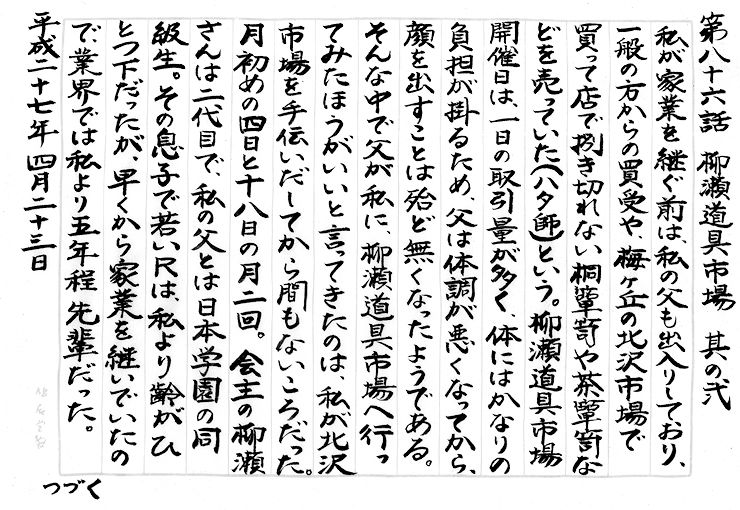 第八十六話 柳瀬道具市場 其の弐
私が家業を継ぐ前は、私の父も出入りしており、
一般の方からの買受や、梅ヶ丘の北沢市場で
買って店で捌き切れない桐簞笥や茶簞笥な
どを売っていた(ハタ師)という。柳瀬道具市場
開催日は、一日の取引量が多く、体にはかなりの
負担が掛るため、父は体調が悪くなってから、
顔を出すことは殆ど無くなったようである。
そんな中で父が私に、柳瀬道具市場へ行っ
てみたほうがいいと言ってきたのは、私が北沢
市場を手伝いだしてから間もないころだった。
月初めの四日と十八日の月二回。会主の柳瀬
さんは二代目で、私の父とは日本学園の同
級生。その息子で若いRは、私より齢がひ
とつ下だったが、早くから家業を継いでいたの
で、業界では私より五年程先輩だった。
平成二十七年四月二十三日
つづく